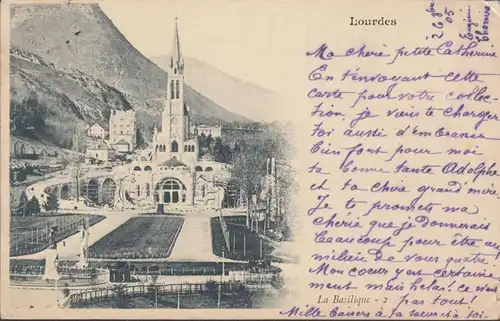 Lourdes
26 Jer
05
Ma chère petite Catherine
En t'envoyant cette
carte pour votre collec-
tion, je viens te charger
toi aussi d'embrasser
bien fort pour moi
ta bonne tante Adolphe
et ta chère grand'mère
Je te promets ma
chérie que je donnerais
beaucoup pour être au
milieu de vous quatre.
Mon coeur y en certaine-
ment mais helas! ce n'est
pas tout!
Mille baisers à ta soeur et à toi.
La Basilique - 2